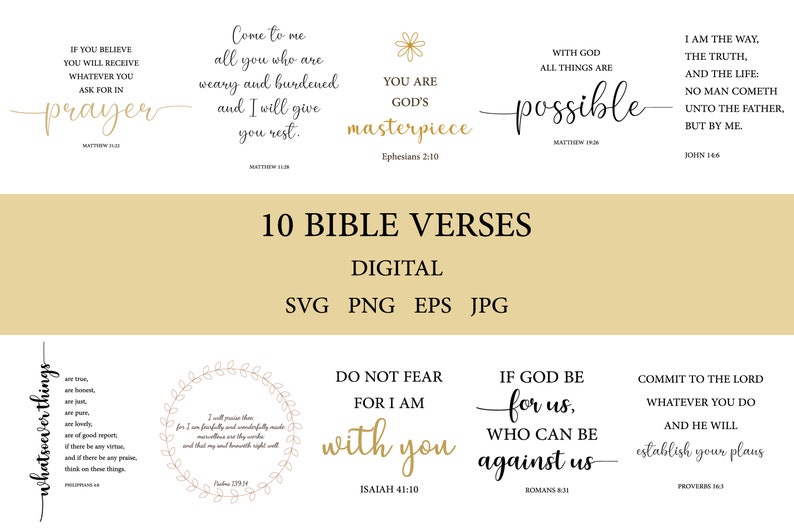 IF YOU BELIEVE
YOU WILL RECEIVE
WHATEVER YOU
ASK FOR IN
prayer
MATTHEW 21:22
Come to me
all you who are
weary and burdened
and I will give
you rest.
MATTHEW 11:28
YOU ARE
GOD'S
masterpiece
Ephesians 2:10
WITH GOD
ALL THINGS ARE
possible
MATTHEW 19:26
I AM THE WAY,
THE TRUTH,
AND THE LIFE:
NO MAN COMETH
UNTO THE FATHER,
BUT BY ME.
JOHN 14:6
10 BIBLE VERSES
DIGITAL
SVG PNG EPS JPG
whatsoever things
are true,
are honest,
are just,
are pure,
are lovely,
are of good report;
if there be any virtue,
and if there be any praise,
think on these things.
PHILIPPIANS 4:8
I will praise thee;
for I am fearfully and wonderfully made:
marvellous are thy works;
and that my soul knoweth right well.
Psalms 139:14
DO NOT FEAR
FOR I AM
with you
ISAIAH 41:10
IF GOD BE
for us,
WHO CAN BE
against us
ROMANS 8:31
COMMIT TO THE LORD
WHATEVER YOU DO
AND HE WILL
establish your plans
PROVERBS 16:3